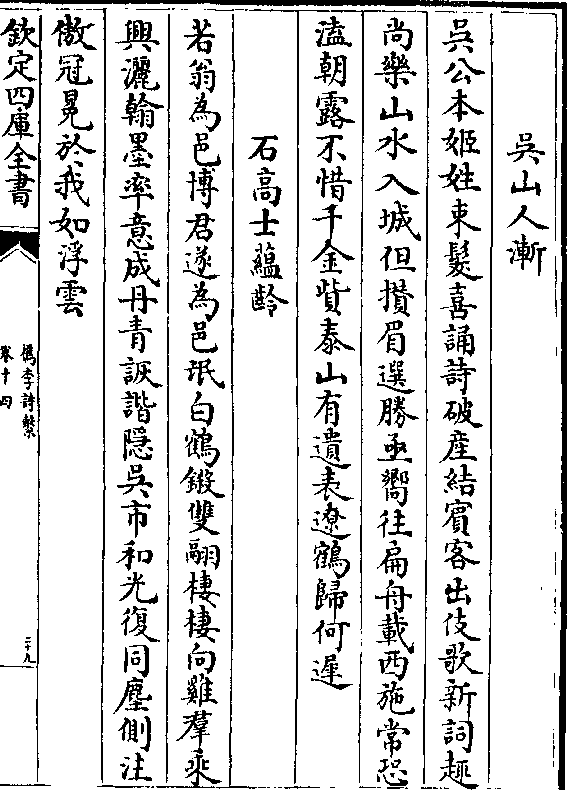 吳山人漸
吳公本姬姓束髮喜誦詩破産結賓客出伎歌新詞趣
尚樂山水入城但攢眉選勝亟嚮往扁舟載西施常恐
溘朝露不惜千金貲泰山有遺表遼鶴歸何遲
石高士蘊齡
若翁為邑博君遂為邑氓白鶴鎩雙翮棲棲向雞羣乘
興灑翰墨率意成丹青詼諧隱吳市和光復同塵側注
傲冠冕於我如浮雲
欽定四庫全書
檇李詩繫
卷十四
二十九